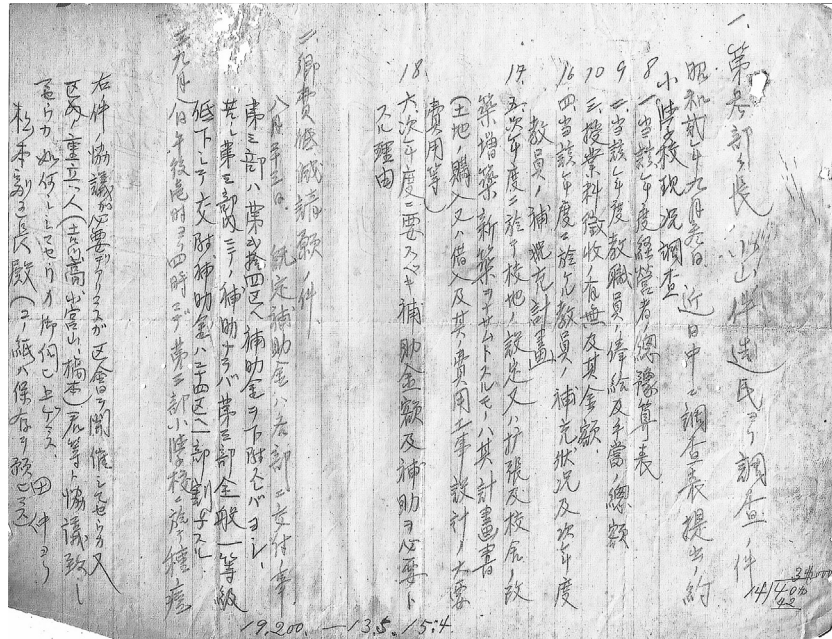 一、第各部々長、小山伴造氏ヨリ調査ノ件
昭和貳年九月 日 近日中ニ調査表提出ノ約
小学校現況調査
8 一、当該年度経営者ノ總豫算表
9 二、当該年度教職員ノ俸給及手當ノ總額
10 三、授業料徴收ノ有無及其金額
16 四、当該年度ニ於ケル教員ノ補充状況及次年度
教員ノ補充計畫
17 五、次年度ニ於テ校地ノ設定又ハ拡張及校舎ノ改
築増築新築ヲナサムトスルモノハ其計畫書
(土地ノ購入又ハ借入及其ノ費用工事設計ノ大要
費用等)
18 六、次年度ニ要スベキ補助金額及補助ヲ必要ト
スル理由
二、郷費低減請願ノ件
八月廿三日 既定補助金ハ各部ニ交付
第三部ハ第弐拾四区ヘ補助金ヲ下附スレバヨシ、
若シ第三部内ニテノ補助ナラバ第三部全般一等級
低下シテ交附補助金ハ二十四区ヘ一部割 スル
三、九月八日午後 時ヨリ四時マデ第三部小学校ニ於テ種痘
右件協議ガ必要デアリマスガ区會ヲ開催シマセウカ又
区内ノ重立 人(吉 高 小宮山、橋本)君等ト協議致シ
マセウカ如何シマセウカ御伺ヒ上ゲマス 田中ヨリ
松本副区長殿 (コノ紙ハ保存ヲ願ヒマス)
14)400
42
19,200.—13.5.15.4.